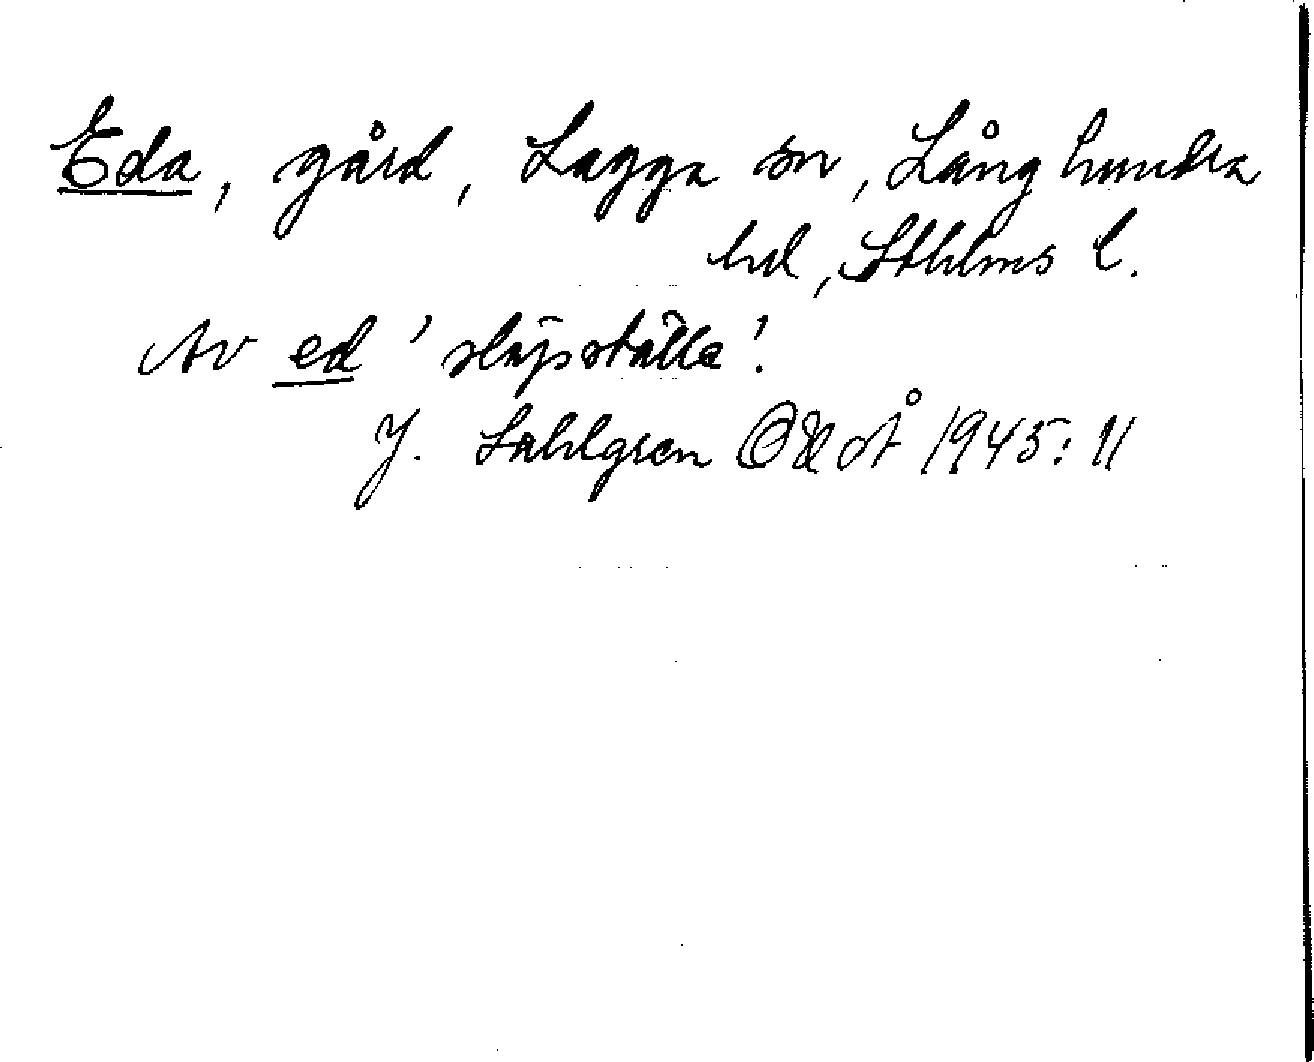 Eda, gård, Lagga sn, Långhundra
hd, Sthlms l.
Av ed 'släpställe'.
J. Sahlgren OUÅ 1945: 11